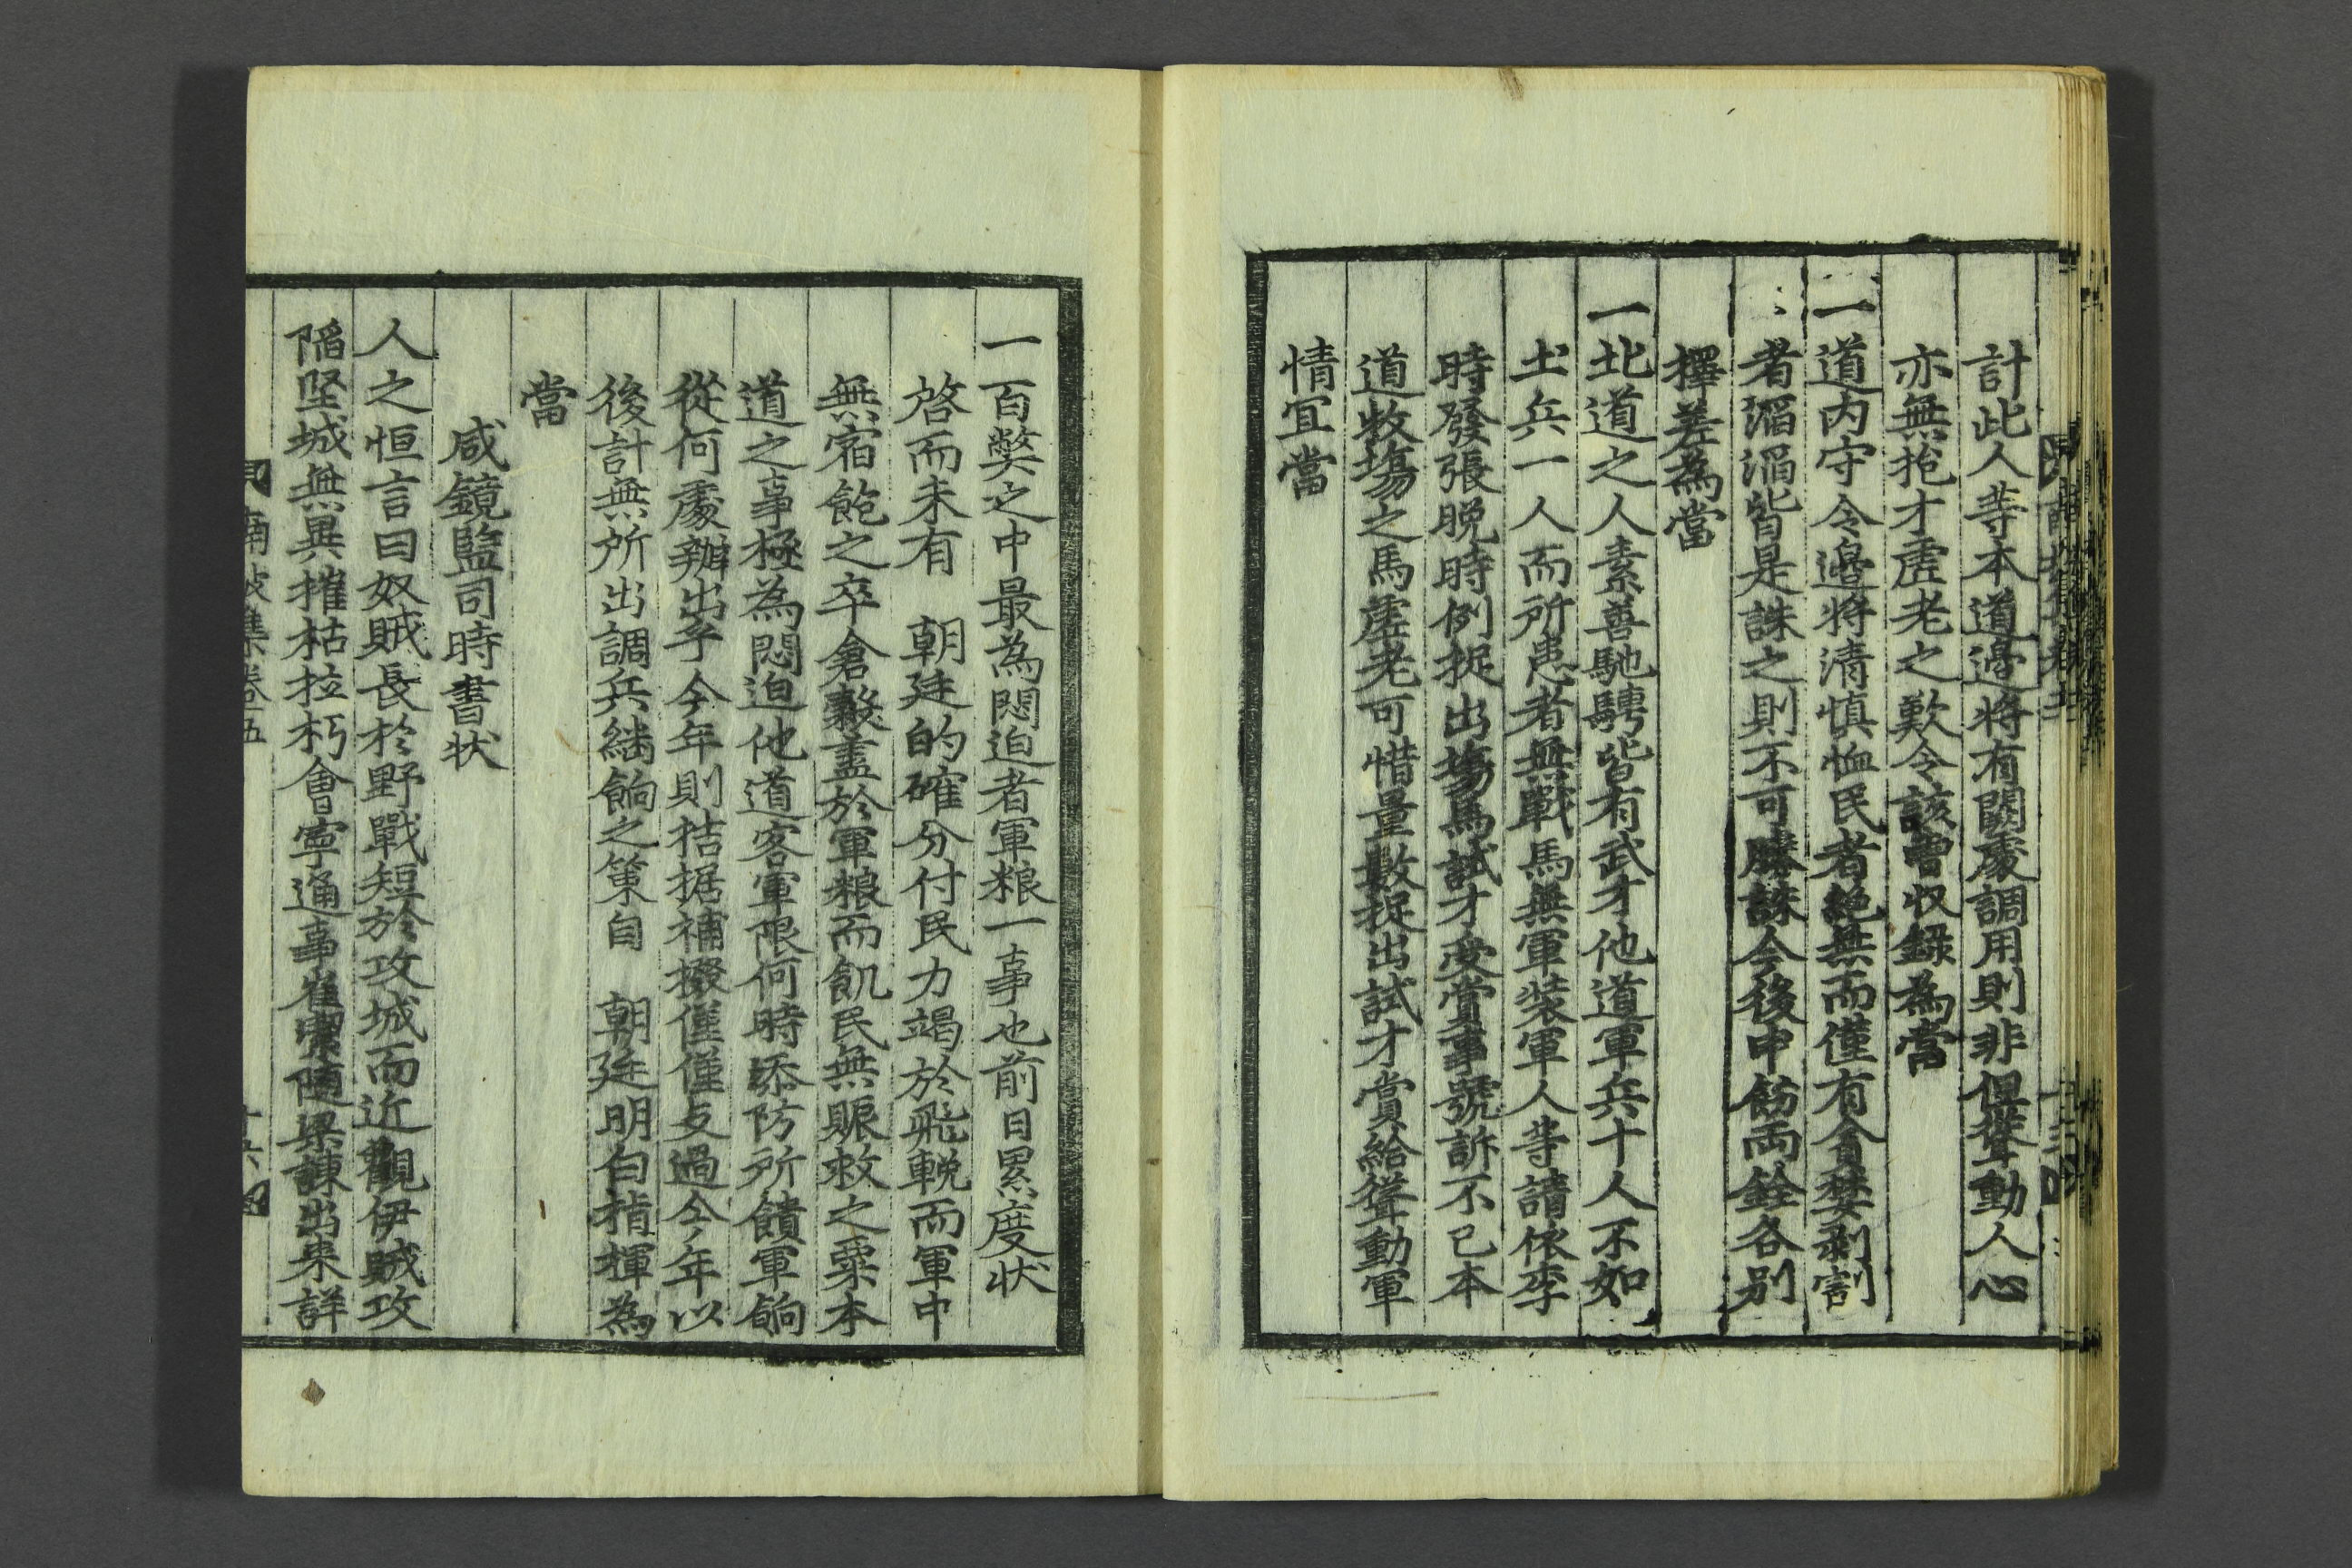 計此人等本道邊將有闕處調用則非但聳動人心
亦無抱才虛老之歎令該曹収錄為當
一道內守令邊將清慎恤民者絶無而僅有貪婪剥割
者滔滔皆是誅之則不可勝誅今後申飭兩銓各別
擇差為當
一北道之人素善馳騁皆有武才他道軍兵十人不如
土兵一人而所患者無戰馬無軍裝軍人等請依李
時發張晚時例捉出塲馬試才受賞事號訴不已本
道牧塲之馬虛老可惜量數捉出試才賞給聳動軍
情宜當
一百獘之中最為悶迫者軍粮一事也前日累度狀
啓而未有 朝廷的確分付民力竭於飛輓而軍中
無宿飽之卒倉穀盡於軍粮而飢民無賑救之粟本
道之事極為悶迫他道客軍限何時添防所饋軍餉
從何處辦出乎今年則拮据補掇僅僅支過今年以
後計無所出調兵繼餉之策自 朝廷明白指揮為
當
咸鏡監司時書狀
人之恒言曰奴賊長於野戰短於攻城而近觀伊賊攻
陷堅城無異摧枯拉朽會寧通事崔潔隨梁諫出來詳
南坡集卷五